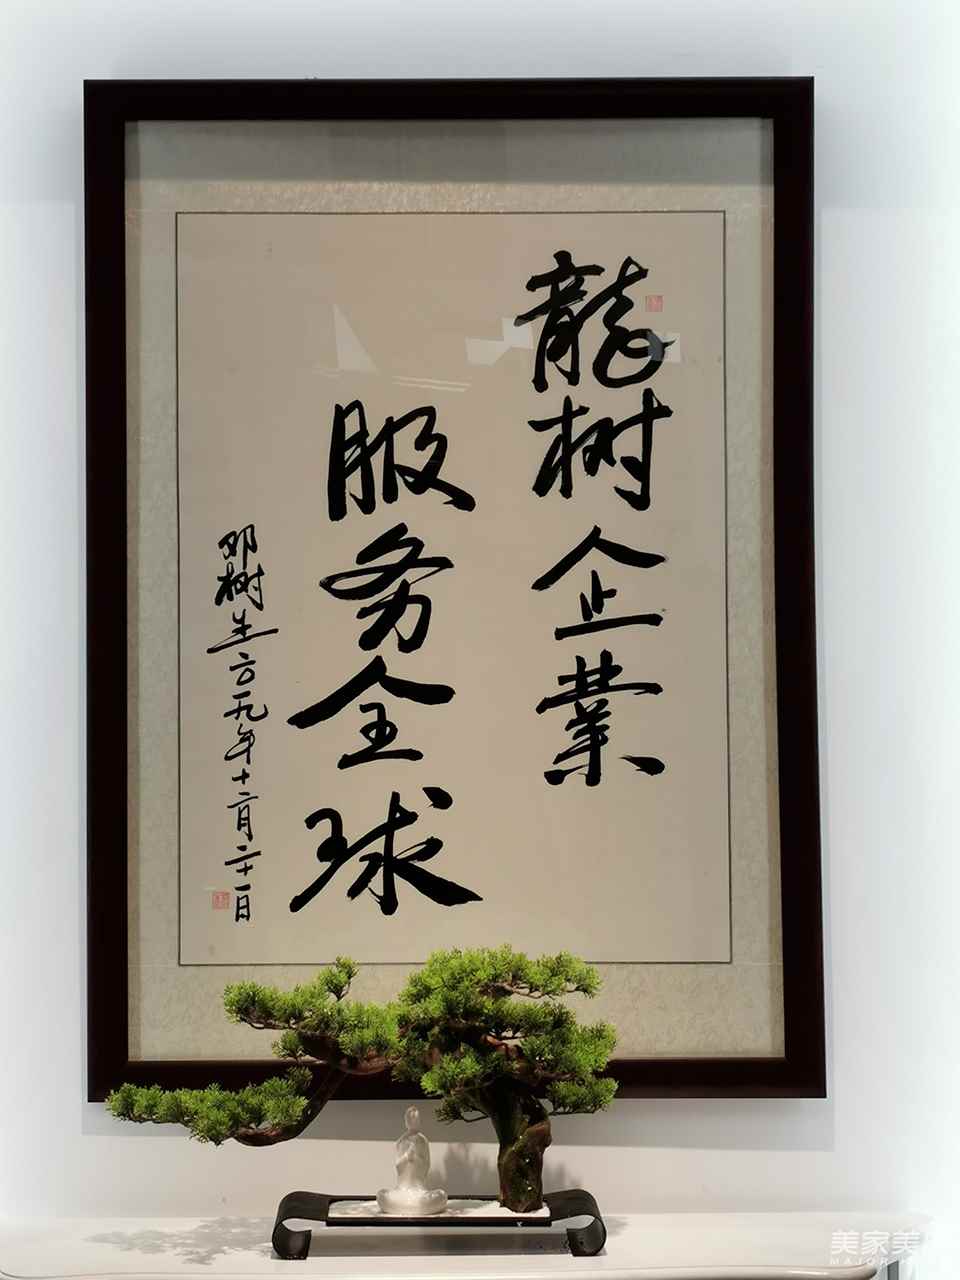 龍树企業
服务全球
邓树生二〇一九年十二月二十一日
美家美
MAJOR